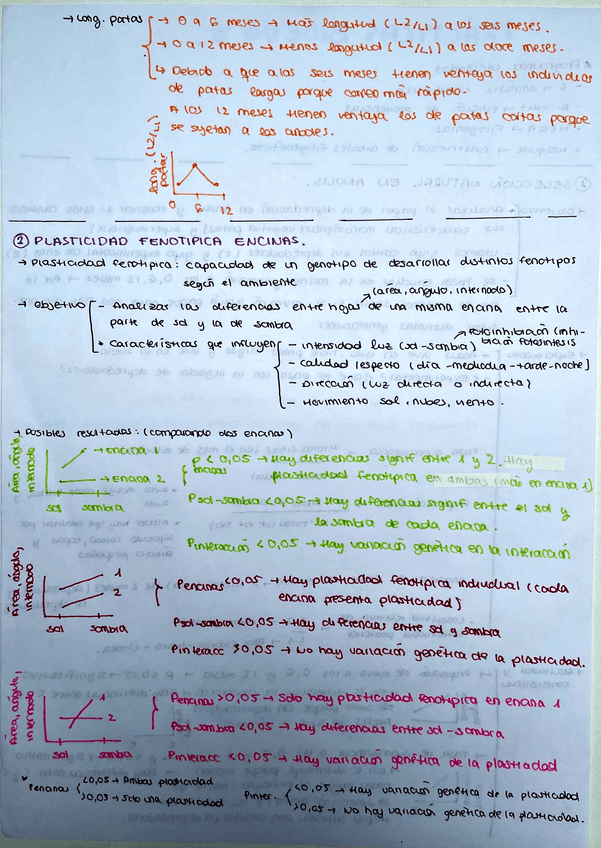 → Long. patas → 0 a 6 meses → Más longitud (L2/L1) a los seis meses.
→ 0 a 12 meses → Menos longitud (L2/L1) a los doce meses.
↳ Debido a que a los seis meses tienen ventaja los individuos
de patas largas porque corren más rápido.
A los 12 meses tienen ventaja los de patas cortas porque
se sujetan a los árboles.
Long. (L2/L1)
patas
0 6 12
② PLASTICIDAD FENOTIPICA ENCINAS.
→ Plasticidad fenotípica: capacidad de un genotipo de desarrollar distintos fenotipos
según el ambiente
(área, ángulo, internodo)
→ Objetivo - Analizar las diferencias entre hojas de una misma encina entre la
parte de sol y la de sombra
fotoinhibición (inhi-
• Características que influyen - intensidad luz (sol-sombra) bición fotosíntesis
- calidad (espectro (día-mediodía-tarde-noche)
- Dirección (luz directa o indirecta)
- Movimiento sol, nubes, viento.
→ Posibles resultados: (comparando dos encinas)
Área, ángulo,
internodo
→ Encina 1
→ Encina 2
sol sombra
P encinas < 0,05 → Hay diferencias signif entre 1 y 2. Hay
plasticidad fenotípica en ambas (más en encina 1)
Psol-sombra < 0,05 → Hay diferencias signif entre el sol y
la sombra de cada encina.
Pinteracción < 0,05 → Hay variación genética en la interacción
Área, ángulo,
internodo
1
2
sol sombra
Pencinas < 0,05 → Hay plasticidad fenotípica individual (cada
encina presenta plasticidad)
Psol-sombra < 0,05 → Hay diferencias entre sol y sombra
Pinteracc > 0,05 → No hay variación genética de la plasticidad.
Área, ángulo,
internodo
1
2
sol sombra
Pencinas > 0,05 → Solo hay plasticidad fenotípica en encina 1
Psol-sombra < 0,05 → Hay diferencias entre sol-sombra
Pinteracc < 0,05 → Hay variación genética de la plasticidad
Pencinas < 0,05 → Ambas plasticidad
> 0,05 → Solo una plasticidad
Pinter. < 0,05 → Hay variación genética de la plasticidad
> 0,05 → No hay variación genética de la plasticidad.